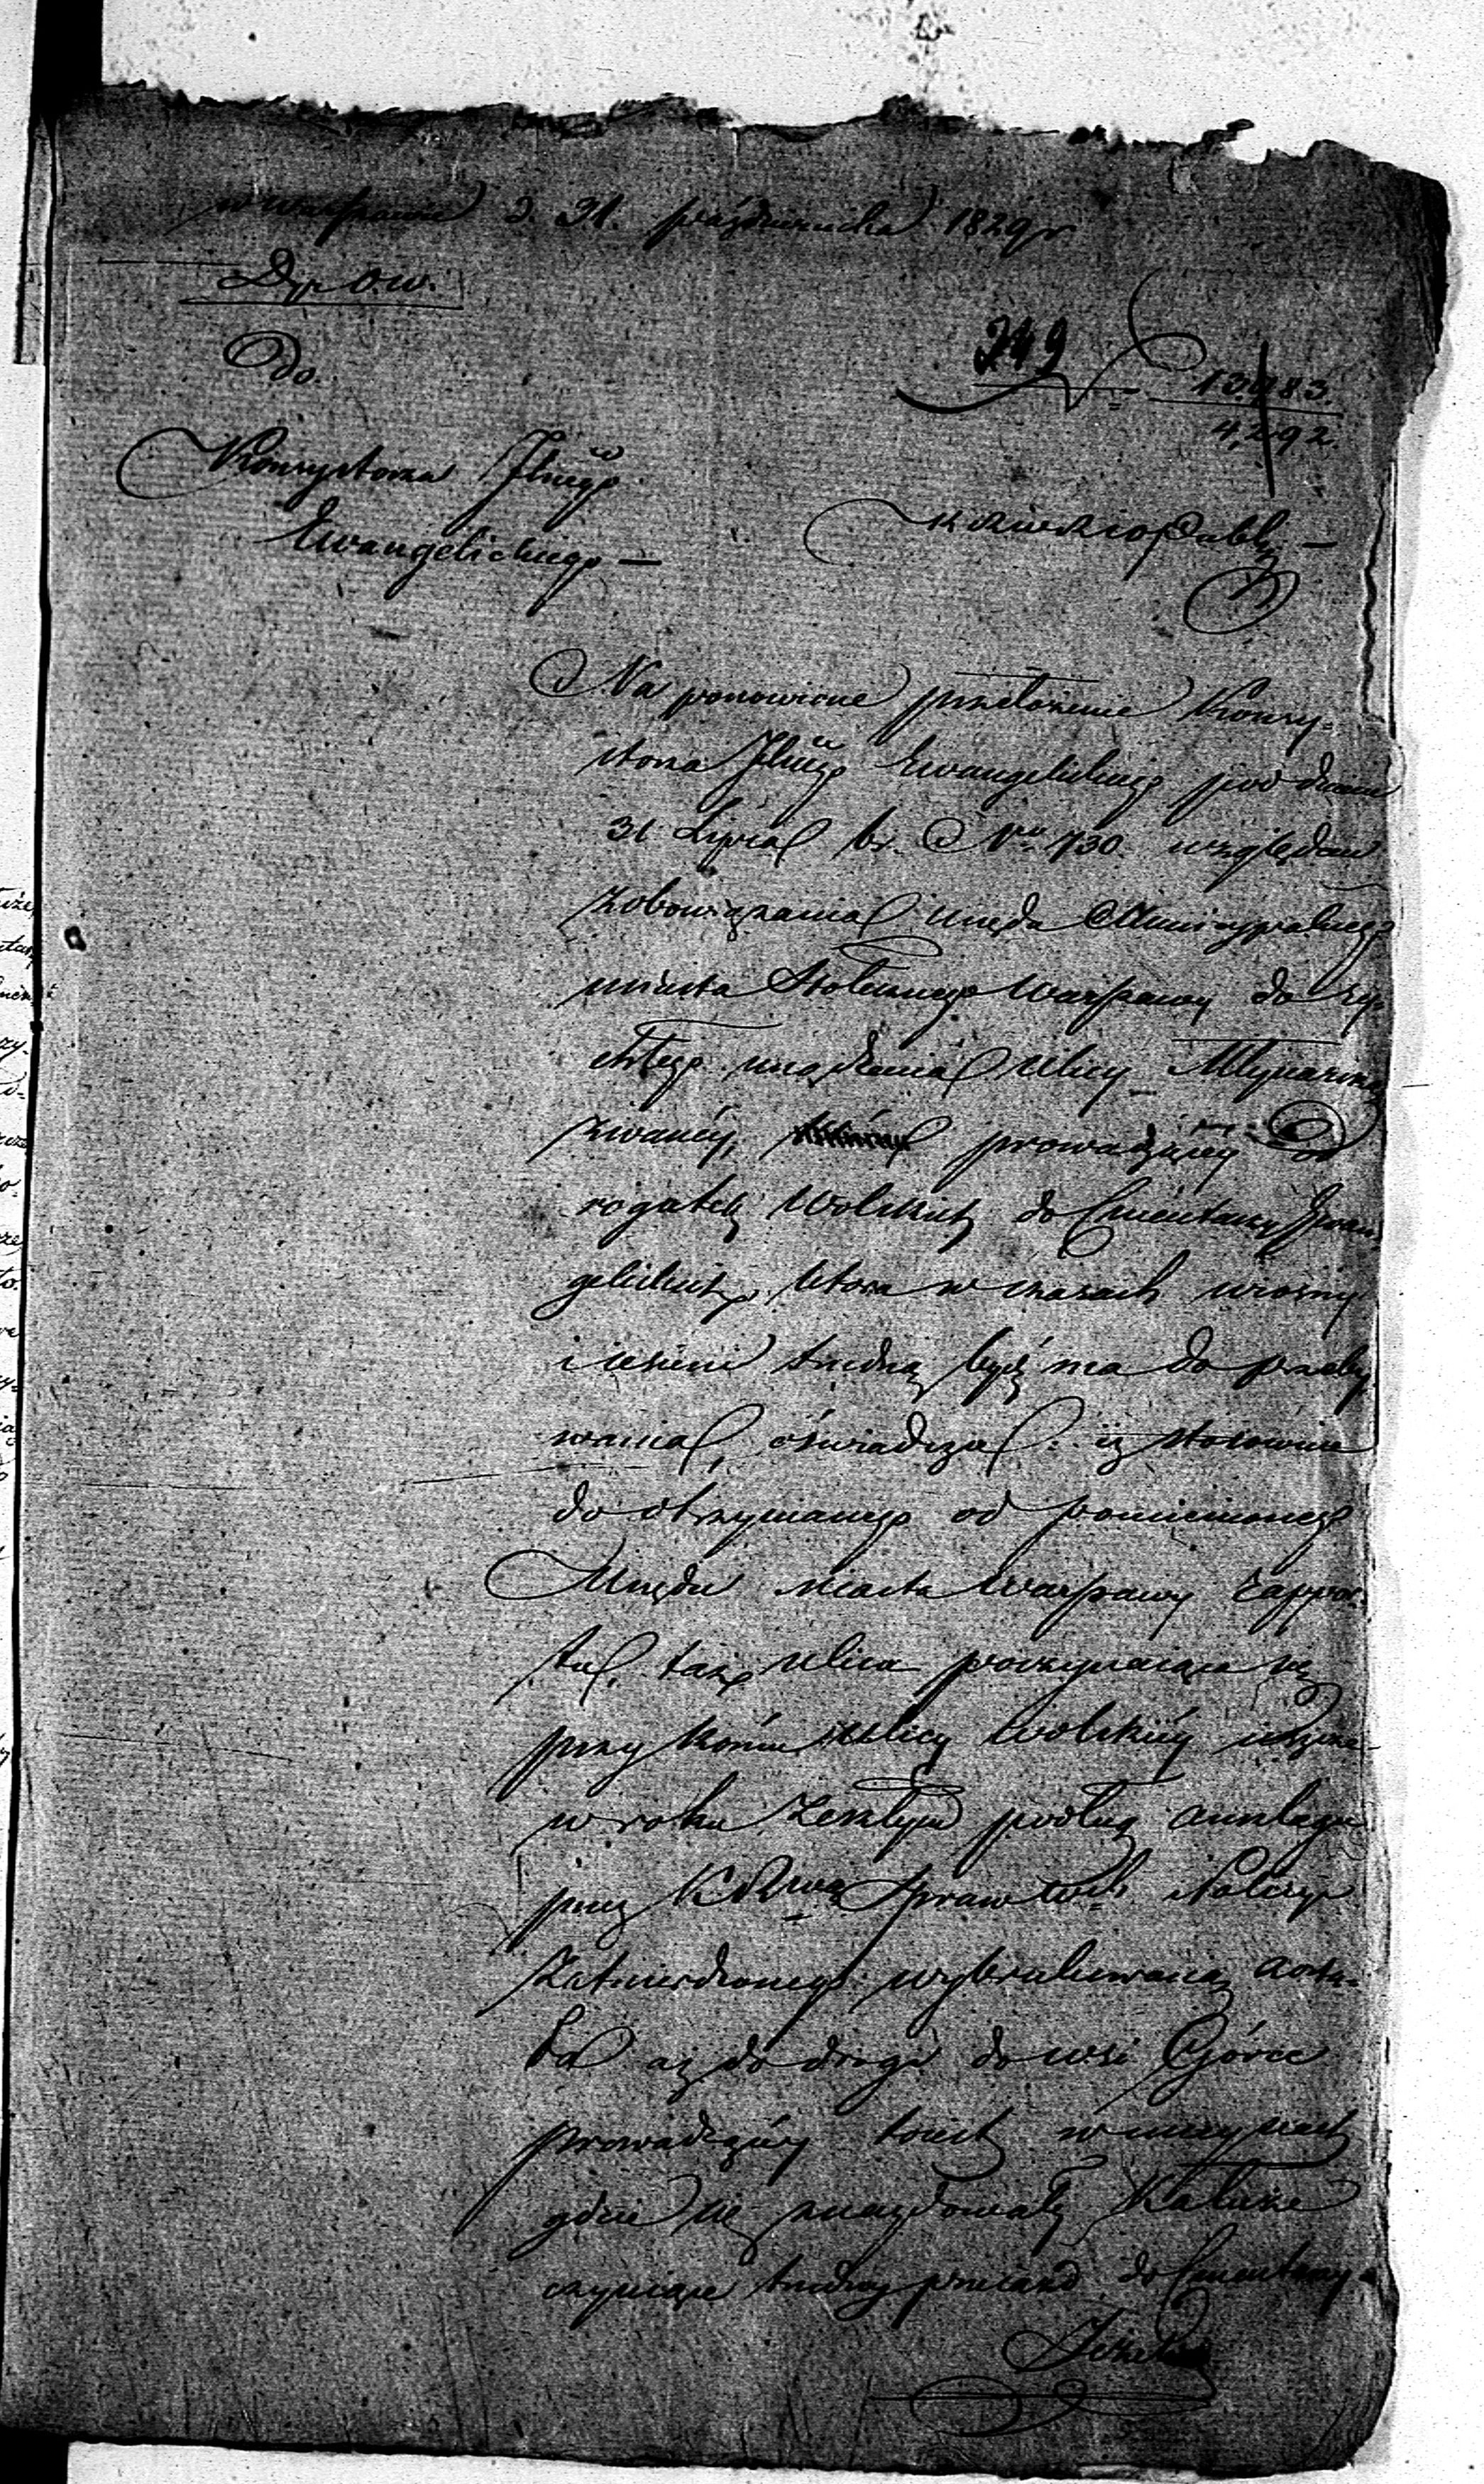 w Warszawie d. 31. października 1829 r
Dyr. O. W.
Do
749
13,983.
4,292.
Konsystorza Jlnego
Ewangelickiego —
Na ponowione przełożenie Konsy-
storza Jlnego Ewangelickiego pod dniem
31 Lipca br. No. 730. względem
zobowiązania urzędu Municypalnego
miasta Stołecznego Warszawy do ry-
chłego urządzenia Ulicy Młynarską
zwanéy, prowadzącey od
rogatek Wolskich do Cmentarzy Ewan-
gelickich, która w czasach wiosny
i iesieni trudną bydź ma do przeby-
wania, oświadcza: iż stosownie
do otrzymanego od pomienionego
Urzędu Miasta Warszawy rappor-
tu, taż ulica poczynaiąca się
przy końcu Ulicy Wolskiéy
w roku zeszłym podług anszlagu
przez K Rwą Spraw Wch i Policyi
zatwierdzonego wybrukowaną zosta-
ła aż do drogi do wsi Górce
prowadzącéy toiest w mieyscach
gdzie się znaydowały Kałuże
czyniące trudny przeiazd do Cmentarzy.